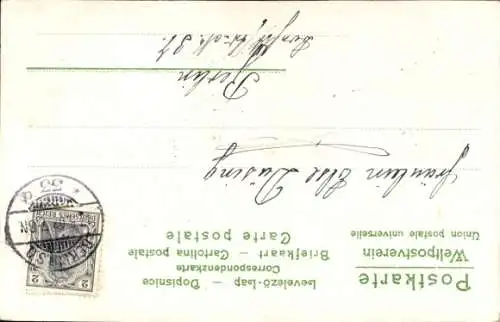 Postkarte
Weltpostverein
Union postale universelle
Levelező-Lap — Dopisnice
Correspondenzkarte
Briefkaart — Cartolina postale
Carte postale
2 2
DEUTSCHES REICH
BERLIN
* 22 a
Fräulein Else Düsing
Berlin